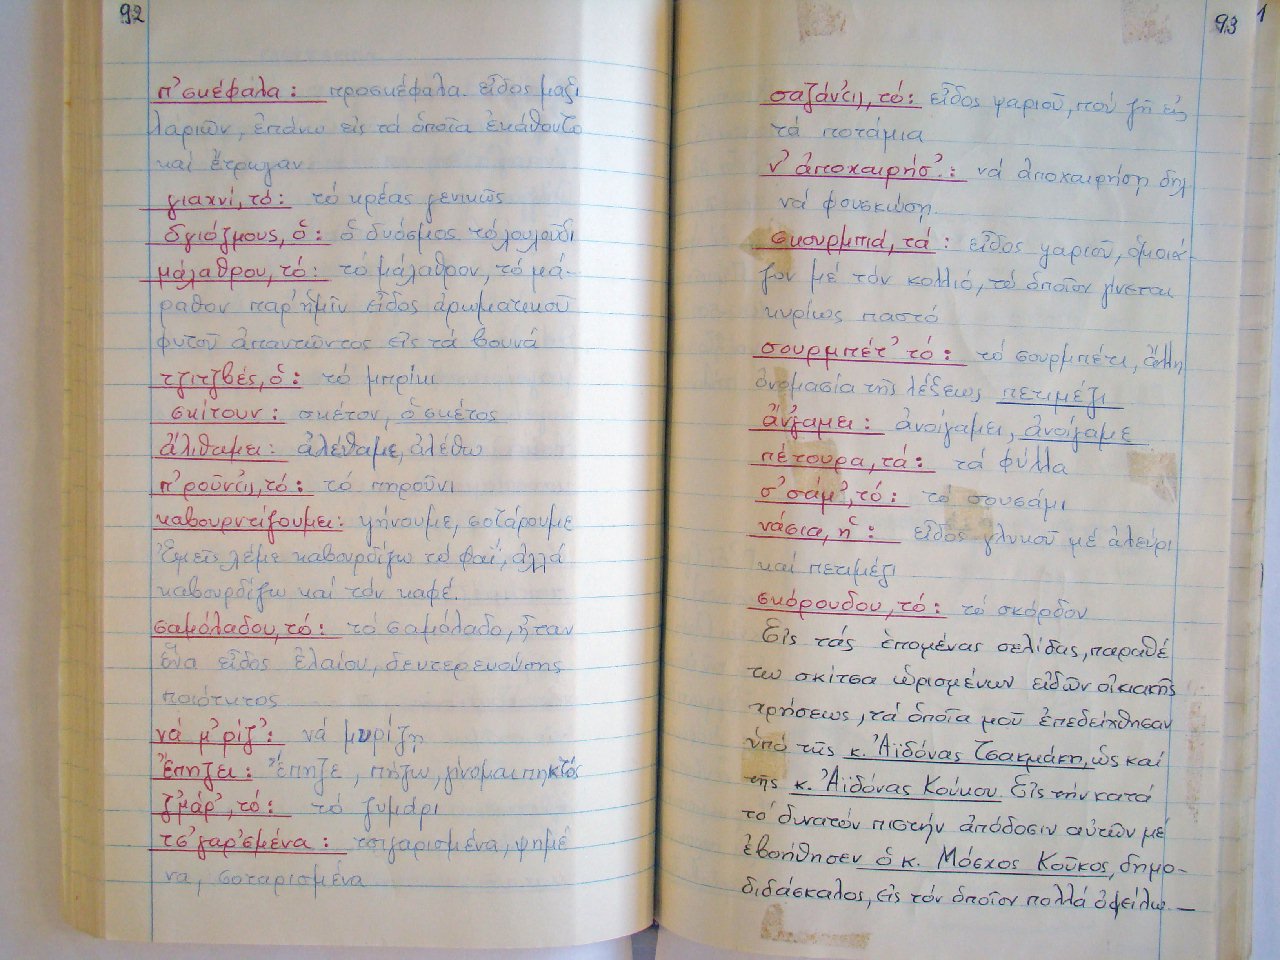 92
π'σκέφαλα: προσκέφαλα. εἶδος μαξι
λαριῶν, ἐπάνω εἰς τά ὁποῖα ἐκάθοντο
καί ἔτρωγαν
γιαχνί, τό: τό κρέας γενικῶς
δγιόζμους, ὁ: ὁ δυόσμος τό λουλοῦδι
μάλαθρου, τό: τό μάλαθρον, τό μά-
ραθον παρ' ἡμῖν εἶδος ἀρωματικοῦ
φυτοῦ ἀπαντῶντος εἰς τά βουνά
τζιτζβές, ὁ: τό μπρίκι
σκίτουν: σκέτον, ὁ σκέτος
ἀλίθαμει: ἀλέθαμε, ἀλέθω
π'ροῦν(ι), τό: τό πηροῦνι
καβουρντίζουμει: ψήνουμε, σοτάρουμε
Ἐμεῖς λέμε καβουρδίζω τό φαΐ, ἀλλά
καβουρδίζω καί τόν καφέ.
σαμόλαδου, τό: τό σαμόλαδο, ἦταν
ἕνα εἶδος ἐλαίου, δευτερευούσης
ποιότητος
νά μ'ρίζ': νά μυρίζῃ
Ἔπηζει: Ἔπηζε, πήζω, γίνομαι πηκτός
ζ'μάρ', τό: τό ζυμάρι
τσ'γαρ'σμένα: τσιγαρισμένα, ψημέ
να, σοταρισμένα
93 1
σαζάν(ι), τό: εἶδος ψαριοῦ, πού ζῆ εἰς
τά ποτάμια
ν' ἀποχαιρήσ': νά ἀποχαιρήσῃ δηλ
νά φουσκώσῃ
σκουρμπιά, τά: εἶδος ψαριοῦ, ὁμοιά-
ζον μέ τόν κολλιό, τό ὁποῖον γίνεται
κυρίως παστό
σουρμπέτ' τό: τό σουρμπέτι, ἄλλη
ὀνομασία τῆς λέξεως πετιμέζι
ἄν'γαμει: ἀνοίγαμει, ἀνοίγαμε
πέτουρα, τά: τά φύλλα
σ'σάμ', τό: τό σουσάμι
νάσια, ἡ: εἶδος γλυκοῦ μέ ἀλεύρι
καί πετιμέζι
σκόρουδου, τό: τό σκόρδον
Εἰς τάς ἑπομένας σελίδας, παραθέ
τω σκίτσα ὡρισμένων εἰδῶν οἰκιακῆς
χρήσεως, τά ὁποῖα μοῦ ἐπεδείχθησαν
ὑπό τῆς κ. Ἀϊδόνας Τσακμάκη, ὡς καί
τῆς κ. Ἀϊδόνας Κούκου. Εἰς τήν κατά
τό δυνατόν πιστήν ἀπόδοσιν αὐτῶν μέ
ἐβοήθησεν ὁ κ. Μόσχος Κοῦκος, δημο-
διδάσκαλος, εἰς τόν ὁποῖον πολλά ὀφείλω.—